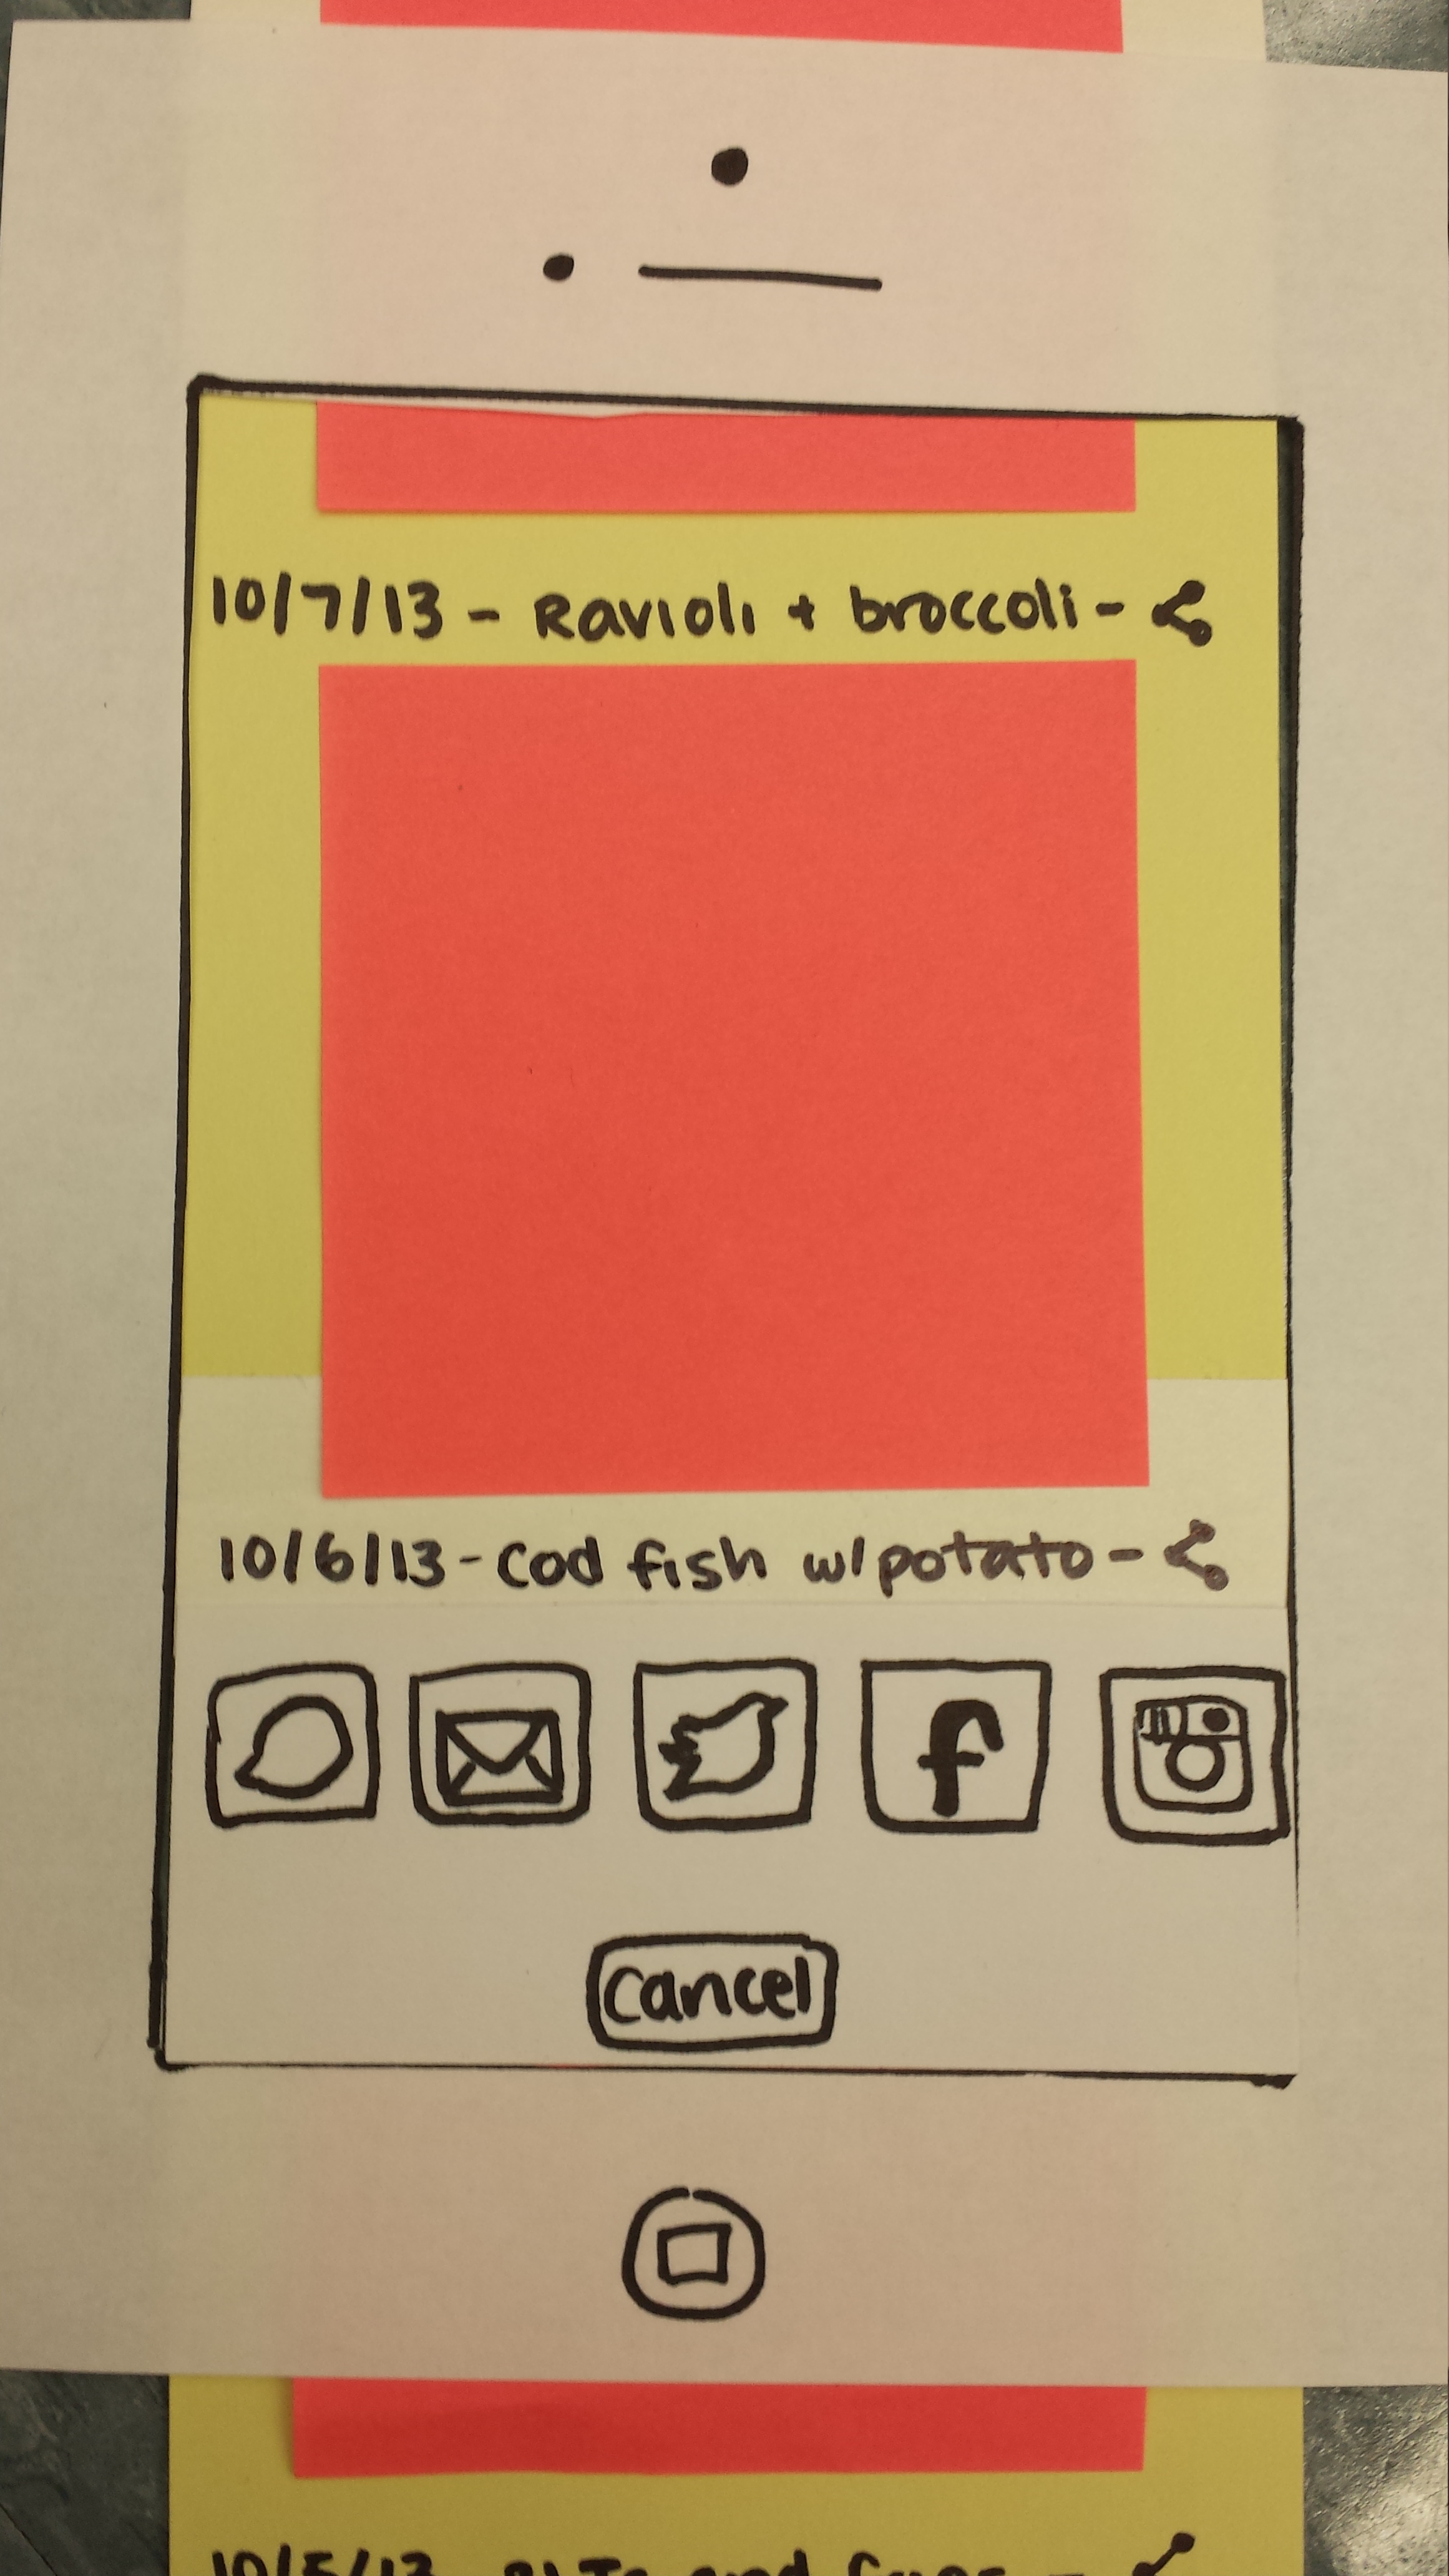 10/7/13 - Ravioli + broccoli -
10/6/13 - Cod fish w/potato -
f
Cancel
10/5/13 and